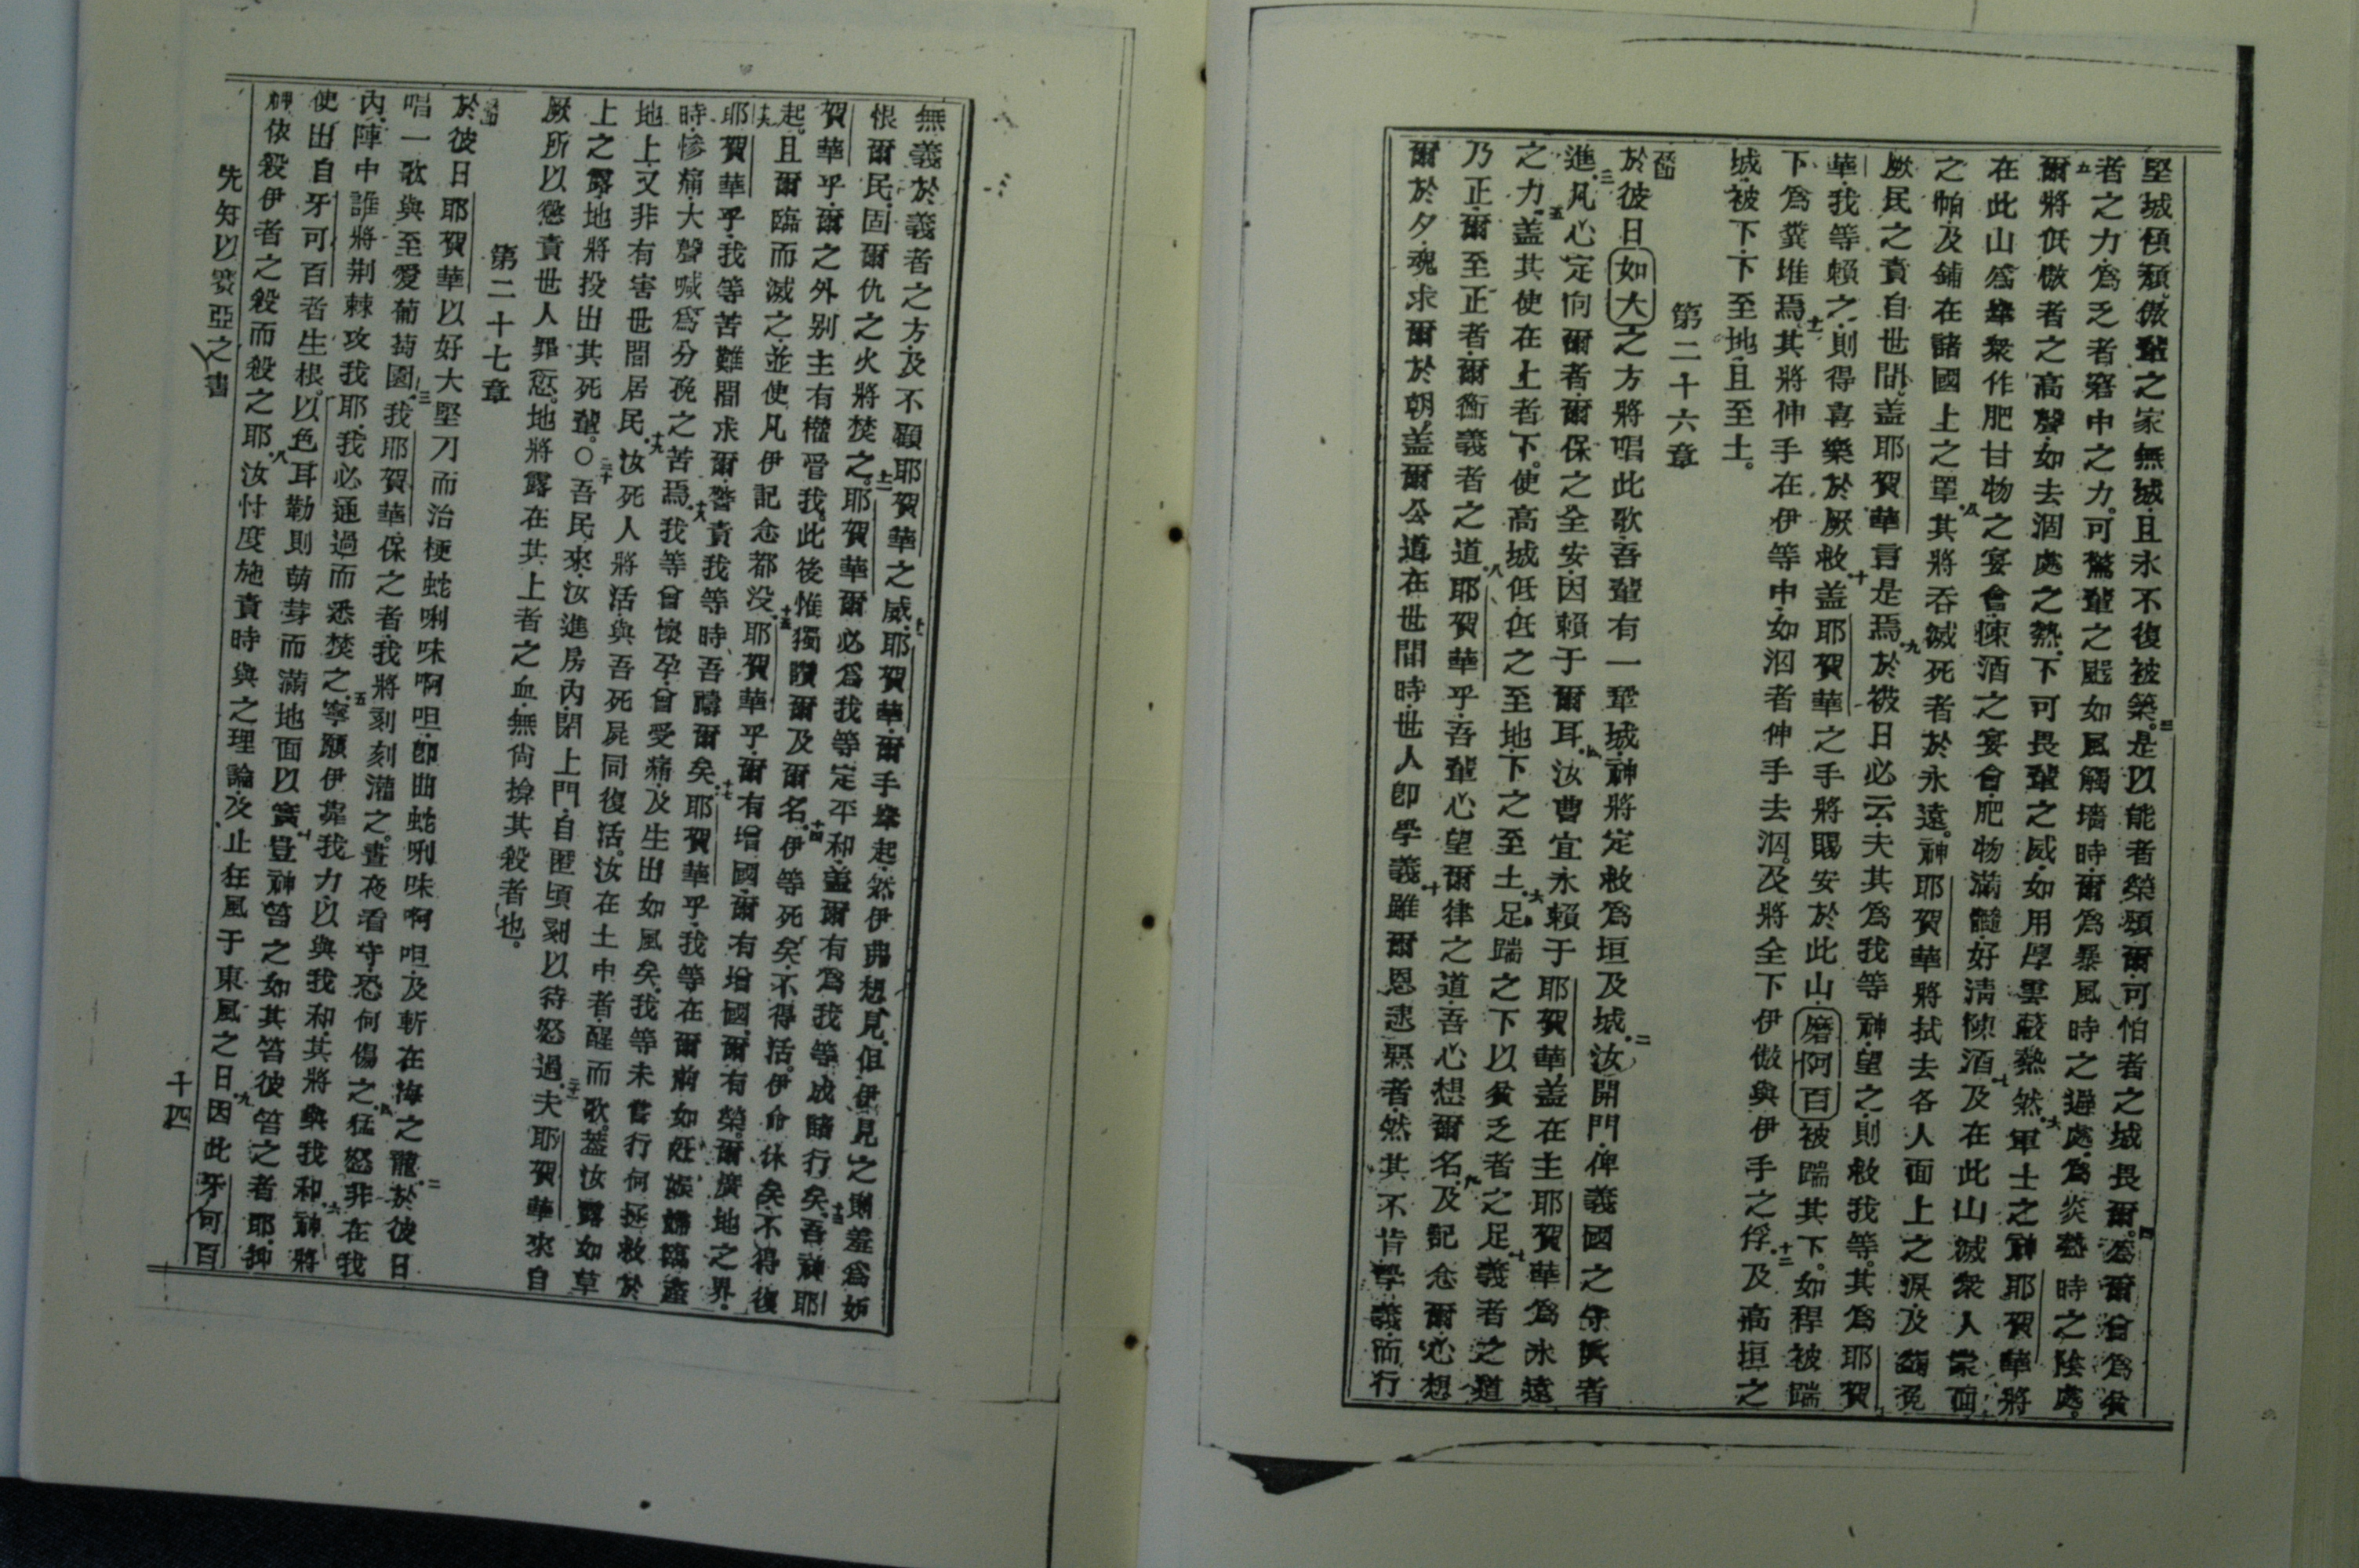 堅城傾頹傲輩之家無城且永不復被築三是以能者榮頌爾可怕者之城畏爾四盖爾曾爲貧
者之力爲乏者窘中之力可驚輩之颶如風觸墻時爾爲暴風時之避處爲炎熱時之陰處
五爾將低傲者之高聲如去涸處之熱下可畏輩之威如用厚雲蔽熱然六軍士之神耶賀華將
在此山爲羣衆作肥甘物之宴會陳酒之宴會肥物滿髓好清陳酒七及在此山滅衆人蒙面
之帕及鋪在諸國上之罩八其將吞滅死者於永遠神耶賀華將拭去各人面上之淚及
厥民之責自世間盖耶賀華言是焉九於彼日必云夫其爲我等神望之則救我等其爲耶賀
華我等賴之則得喜樂於厥救十盖耶賀華之手將賜安於此山磨阿百被踹其下如稈被踹
下爲糞堆焉十一其將伸手在伊等中如泅者伸手去泅及將全下伊傲與伊手之俘十二及高垣之
城被下下至地且至土
第二十六章
於彼日如大之方將唱此歌吾輩有一鞏城神將定救爲垣及城二汝開門俾義國之守眞者
進三凡心定向爾者爾保之全安因賴于爾耳四汝曹宜永賴于耶賀華盖在主耶賀華爲永遠
之力五盖其使在上者下使高城低低之至地下之至土六足踹之下以貧乏者之足七義者之道
乃正爾至正者爾衡義者之道八耶賀華乎吾輩心望爾律之道吾心想爾名及記念爾九心想
爾於夕魂求爾於朝盖爾公道在世間時世人卽學義十雖爾恩逮惡者然其不肯學義而行
無義於義者之方及不顧耶賀華之威十一耶賀華爾手舉起然伊弗想見但伊見之則羞爲妬
恨爾民固爾仇之火將焚之十二耶賀華爾必爲我等定平和盖爾有爲我等成諸行矣十三吾神耶
賀華乎爾之外别主有權管我此後惟獨讚爾及爾名十四伊等死矣不得活伊命休矣不得復
起且爾臨而滅之並使凡伊記念都没十五耶賀華乎爾有增國爾有增國爾有榮爾廣地之界
十六耶賀華乎我等苦難間求爾警責我等時吾禱爾矣十七耶賀華乎我等在爾前如妊娠婦臨產
時慘痛大聲喊爲分娩之苦焉十八我等曾懷孕曾受痛及生出如風矣我等未嘗行何拯救於
地上又非有害世間居民十九汝死人將活與吾死屍同復活汝在土中者醒而歌蓋汝露如草
上之露地將投出其死輩〇二十吾民來汝進房内閉上門自匿頃刻以待怒過二十一夫耶賀華來自
厥所以懲責世人罪愆地將露在其上者之血無尙掩其殺者也
第二十七章
於彼日耶賀華以好大堅刀而治梗蛇唎味啊呾卽曲蛇唎味啊呾及斬在海之龍二於彼日
唱一歌與至愛葡萄園三我耶賀華保之者我將刻刻灌之晝夜看守恐何傷之四猛怒非在我
内陣中誰將荆棘攻我耶我必通過而悉焚之五寧願伊靠我力以與我和其將與我和六神將
使出自牙可百者生根以色耳勒則萌芽而滿地面以實七豈神笞之如其笞彼笞之者耶抑
神依殺伊者之殺而殺之耶八汝忖度施責時與之理論及止狂風于東風之日九因此牙可百
先知以賽亞之書
十四